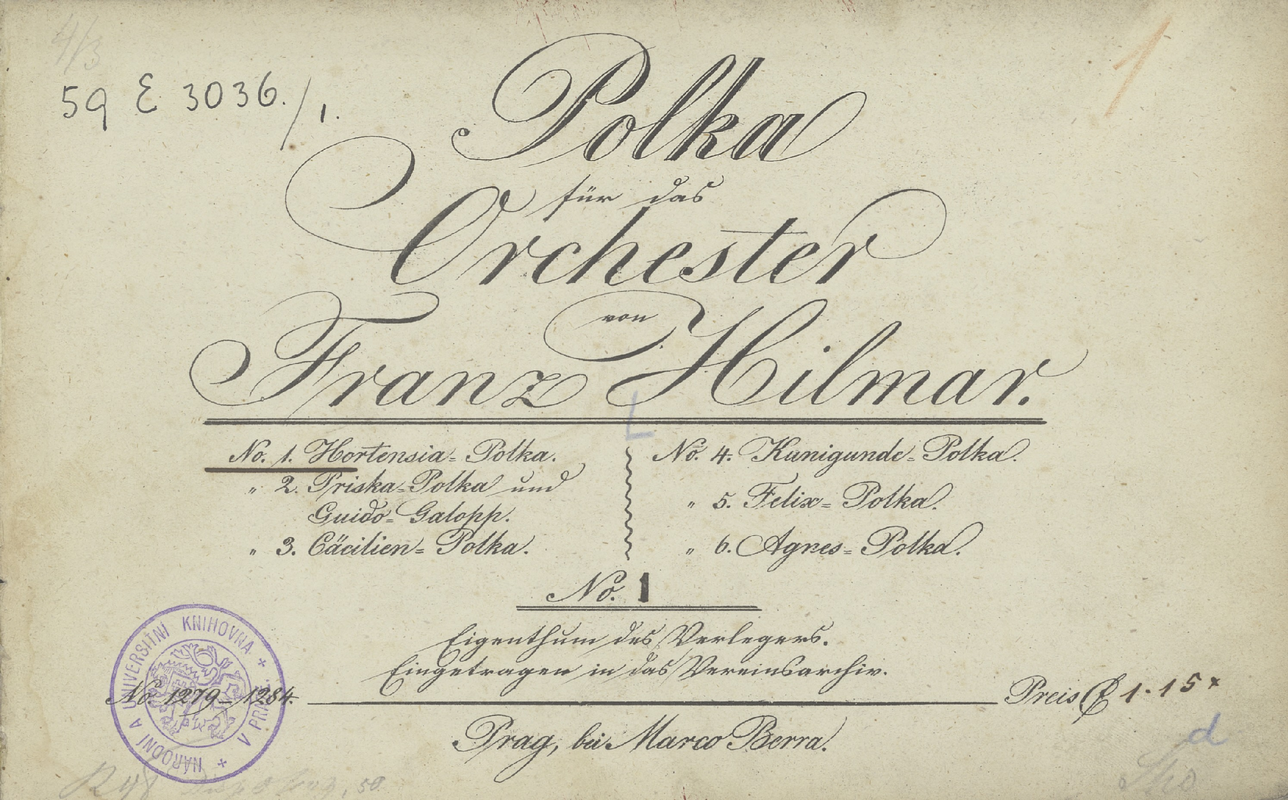 4/3
1
59 E 3036./1.
Polka
für das
Orchester
von
Franz Hilmar.
No. 1. Hortensia=Polka.
" 2. Priska=Polka und
Guido=Galopp.
" 3. Cäcilien=Polka.
No. 4. Kunigunde=Polka.
" 5. Felix=Polka.
" 6. Agnes=Polka.
No. 1
Eigenthum des Verlegers.
Eingetragen in das Vereinsarchiv.
No. 1279–1284.
Preis f 1.15 x
Prag, bei Marco Berra.
NÁRODNÍ A UNIVERSITNÍ KNIHOVNA + V PRAZE +
d